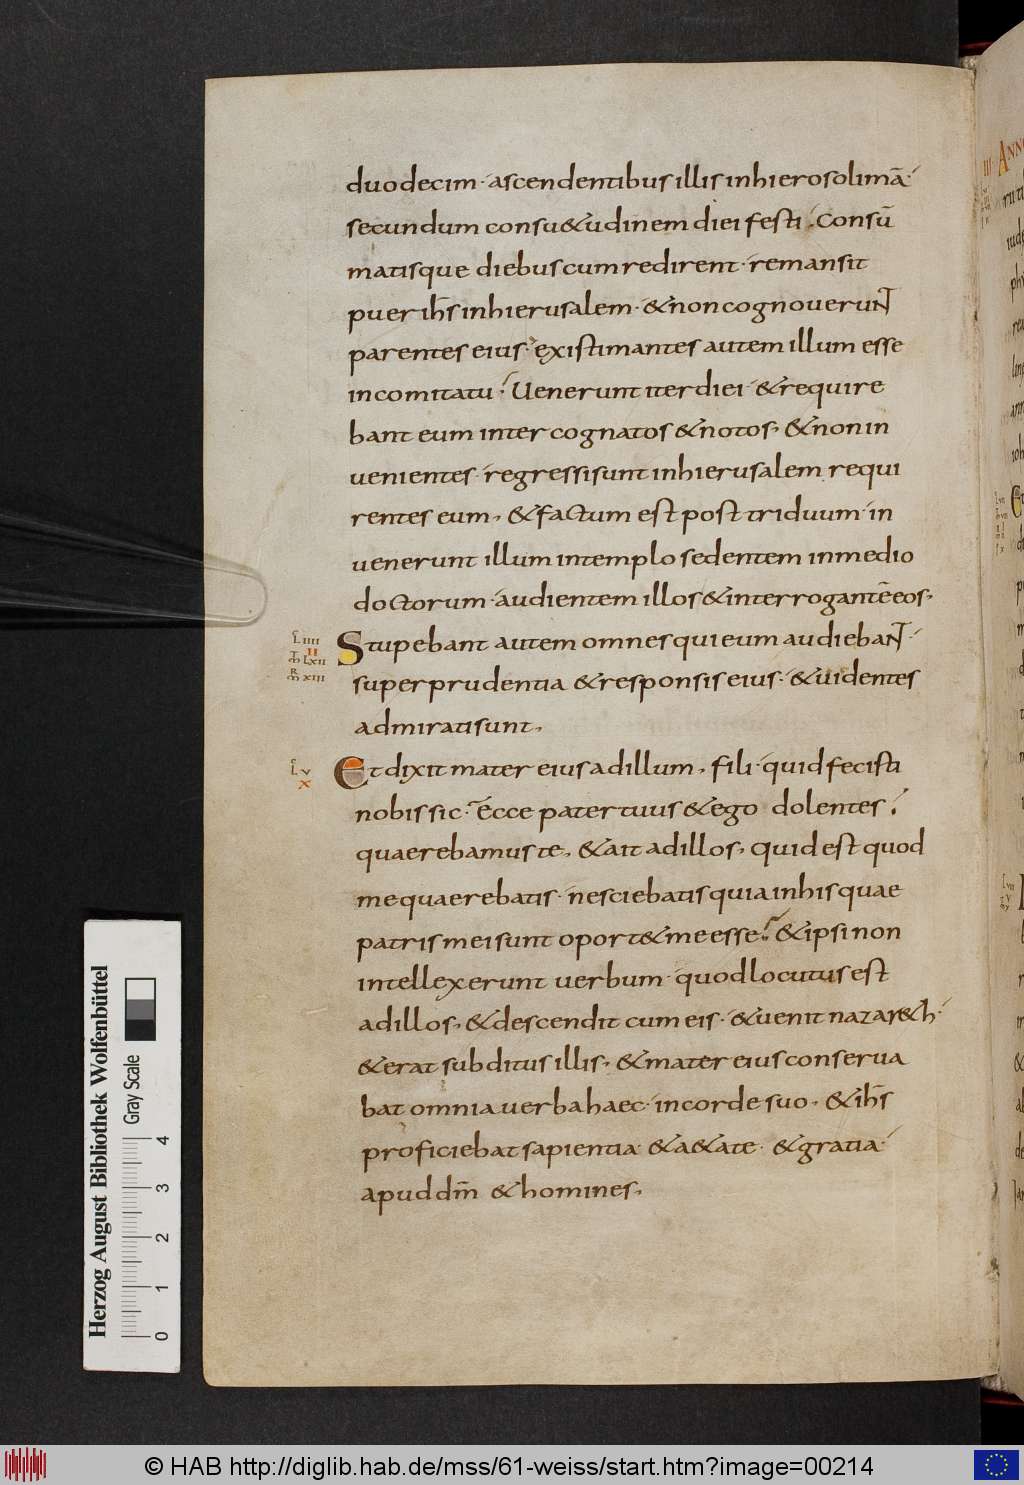 duodecim· ascendentibus illis inhierosolimā·
secundum consu&udinem diei festi· Consū
matisque diebus cum redirent· remansit
puer ih̄s inhierusalem· &non cognouerunt
parentes eius· existimantes autem illum esse
incomitatu· Uenerunt iter diei· &require
bant eum inter cognatos &notos, &non in
uenientes· regressi sunt inhierusalem requi
rentes eum, &factum est post triduum· in
uenerunt illum intemplo sedentem inmedio
doctorum· audientem illos &interrogantē eos,
L IIII
II
M LXII
M XIII
Stupebant autem omnes qui eum audiebant·
super prudentia &responsis eius· &uidentes
admirati sunt,
L V
X
Et dixit mater eius adillum, fili· quid fecisti
nobis sic· Ecce pater tuus &ego dolentes
quaerebamus te, &ait adillos, quid est quod
me quaerebatis· nesciebatis quia inhis quae
patris mei sunt oport& me esse? &ipsi non
intellexerunt uerbum· quod locutus est
adillos, &descendit cum eis· &uenit nazar&h·
&erat subditus illis, &mater eius conserua
bat omnia uerba haec· incorde suo, &ih̄s
proficiebat sapientia &a&ate· &gratia·
apud dm̄ &homines,
III ANNO
Herzog August Bibliothek Wolfenbüttel
Gray Scale
0 1 2 3 4
© HAB http://diglib.hab.de/mss/61-weiss/start.htm?image=00214